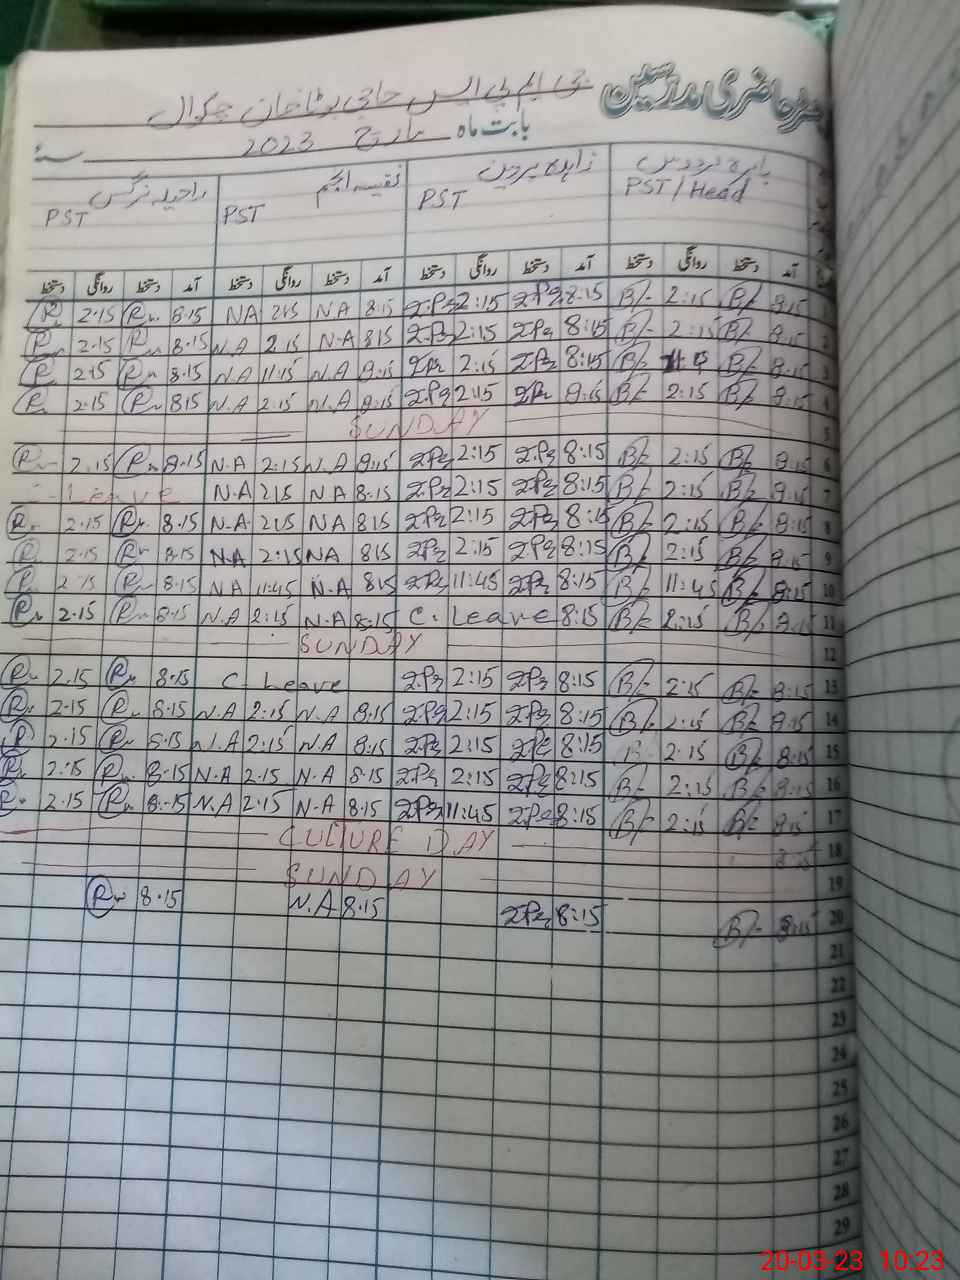 حاضری مدرسین
جی ایم پی ایس حاجی بوٹا خان چکوال
بابت ماہ مارچ 2023 سنہ
PST / Head زاہدہ پروین PST نفیسہ انجم PST راحیلہ نرگس PST
آمد دستخط روانگی دستخط آمد دستخط روانگی دستخط آمد دستخط روانگی دستخط آمد دستخط روانگی دستخط
2.15 8.15 NA 2.15 NA 8.15 2:15 8:15 B/- 2:15 B/- 8:15
2.15 8.15 N.A 2.15 N.A 8.15 2:15 8:15 B/- 2:15 B/- 8:15 2
2.15 8.15 N.A 11.15 N.A 8.15 2:15 8:15 B/- B/- 8:15 3
2.15 8.15 N.A 2.15 N.A 8.15 2:15 8:15 B/- 2:15 B/- 8:15 4
SUNDAY 5
2.15 8.15 N.A 2.15 N.A 8.15 2:15 8:15 B/- 2:15 B/- 8:15 6
C. Leave N.A 2.15 NA 8.15 2:15 8:15 B/- 2:15 B/- 8:15 7
2.15 8.15 N.A 2.15 NA 8.15 2:15 8:15 B/- 2:15 B/- 8:15 8
2.15 8.15 N.A 2.15 NA 8.15 2:15 8:15 B/- 2:15 B/- 8:15 9
2.15 8.15 NA 11:45 N.A 8.15 11:45 8:15 B/- 11:45 B/- 8:15 10
2.15 8.15 N.A 2:15 N.A 8.15 C. Leave 8:15 B/- 2:15 B/- 8:15 11
SUNDAY 12
2.15 8.15 C Leave 2:15 8:15 B/- 2:15 B/- 8:15 13
2.15 8.15 N.A 2:15 N.A 8.15 2:15 8:15 B/- 2:15 B/- 8:15 14
2.15 8.15 N.A 2:15 N.A 8.15 2:15 8:15 B 2:15 B/- 8:15 15
2.15 8.15 N.A 2.15 N.A 8.15 2:15 8:15 B/- 2:15 B/- 8:15 16
2.15 8.15 N.A 2.15 N.A 8.15 11:45 8:15 B/- 2:15 B/- 8:15 17
CULTURE DAY 18
SUNDAY 19
8.15 N.A 8.15 8:15 B/- 8:15 20
21
22
23
24
25
26
27
28
29
20-03-23 10:23